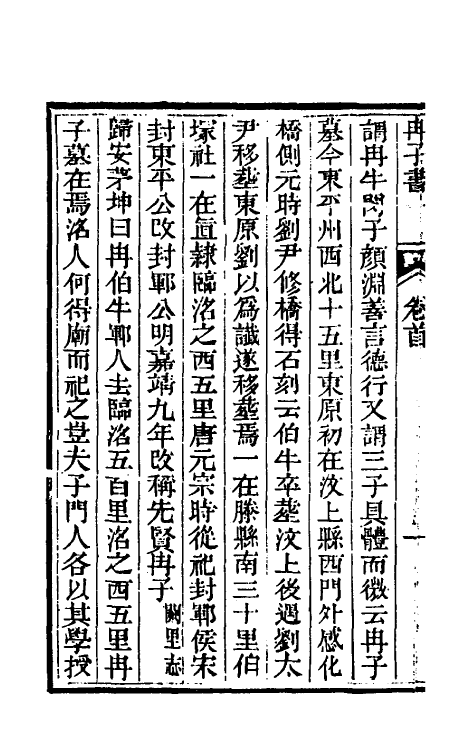 冉子書
卷首
謂冉牛閔子顏淵善言德行又謂三子具體而微云冉子
墓今東平州西北十五里東原初在汶上縣西門外感化
橋側元時劉尹修橋得石刻云伯牛卒塟汶上後遇劉太
尹移塟東原劉以為讖遂移塟焉一在滕縣南三十里伯
塚社一在直隸臨洺之西五里唐元宗時從祀封鄆侯宋
封東平公改封鄆公明嘉靖九年改稱先賢冉子闕里志
歸安茅坤曰冉伯牛鄆人去臨洺五百里洺之西五里冉
子墓在焉洺人何得廟而祀之豈夫子門人各以其學授